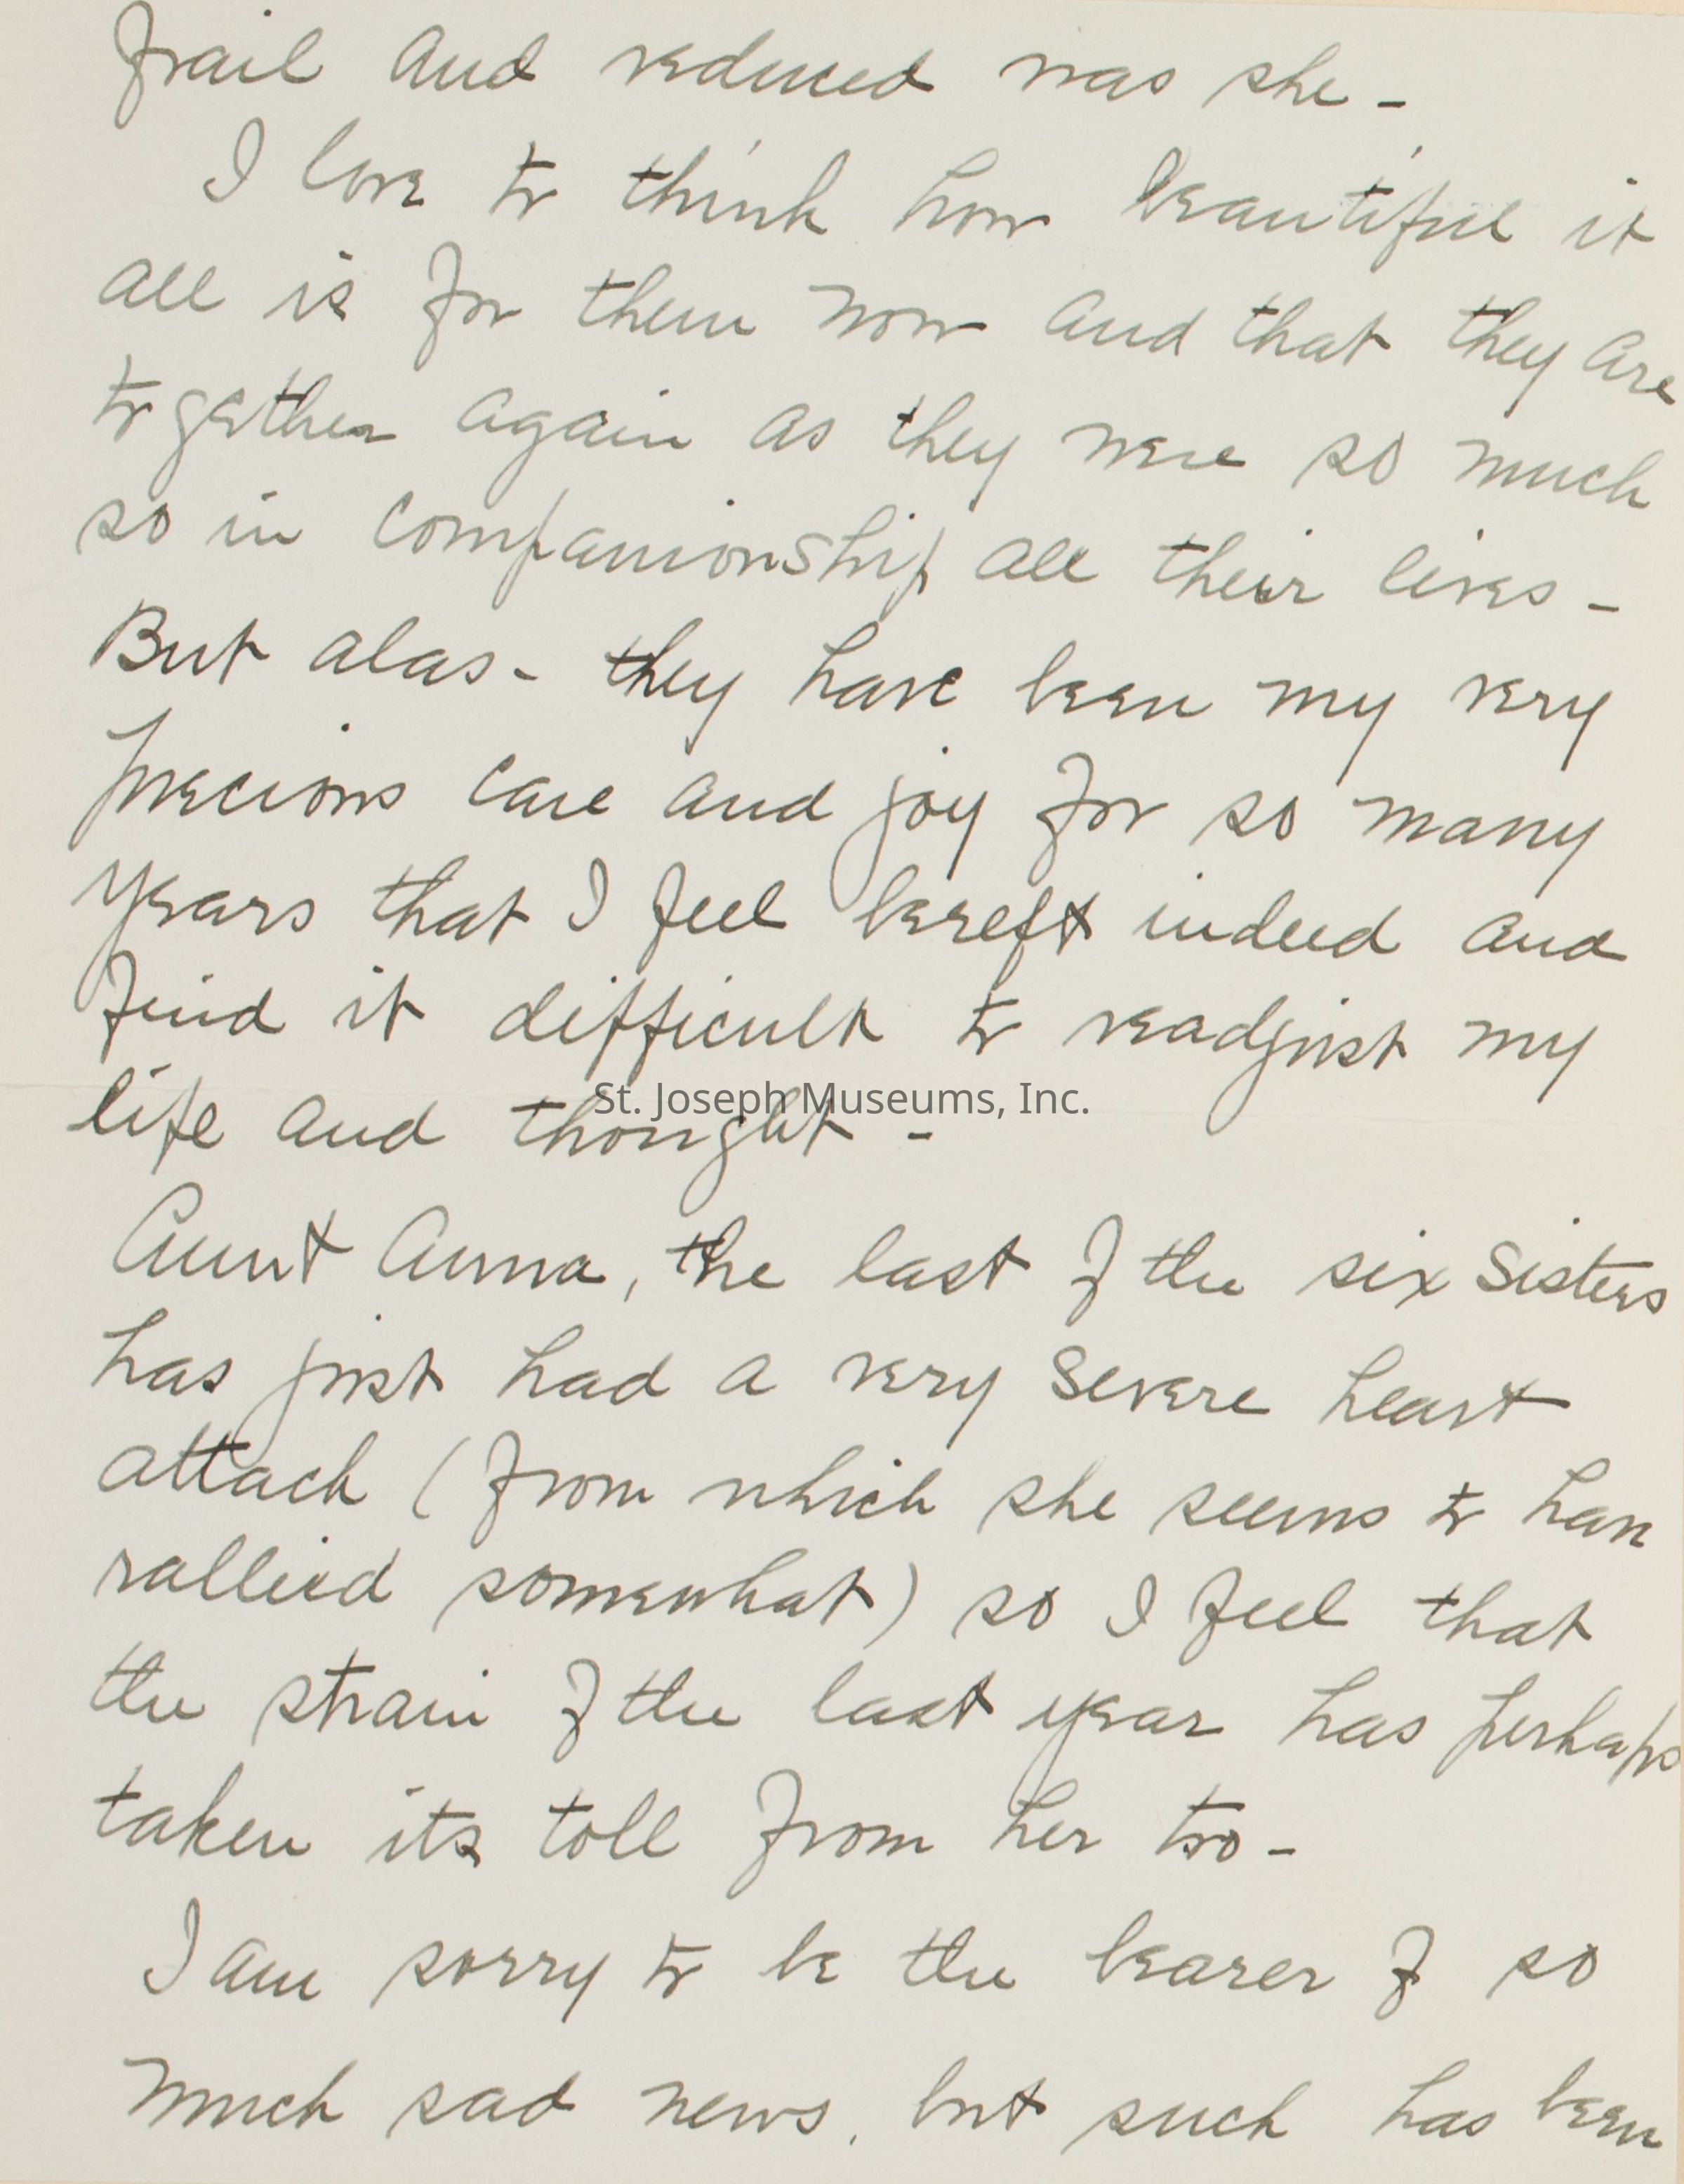 frail and reduced was she -
I love to think how beautiful it
all is for them now and that they are
together again as they were so much
so in companionship all their lives -
But alas - they have been my very
precious care and joy for so many
years that I feel bereft indeed and
find it difficult to readjust my
life and thought -
St. Joseph Museums, Inc.
Aunt Anna, the last of the six sisters
has just had a very severe heart
attack (from which she seems to have
rallied somewhat) so I feel that
the strain of the last year has perhaps
taken its toll from her too -
I am sorry to be the bearer of so
much sad news, but such has been